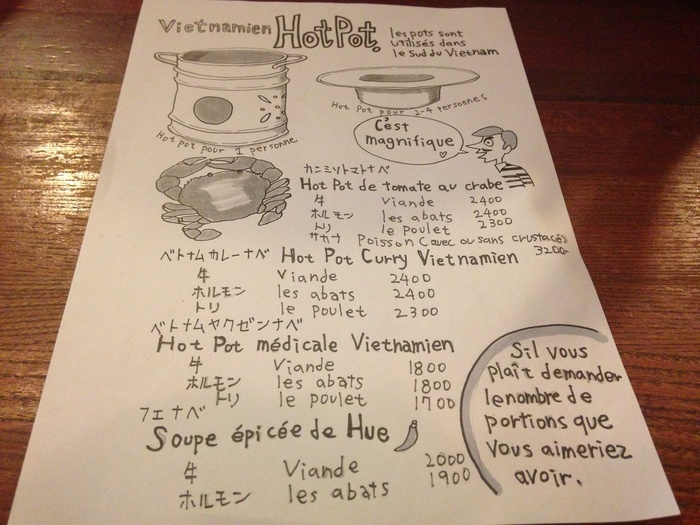 Vietnamien Hot Pot.
les pots sont
utilisés dans
le Sud du Vietnam
Hot Pot pour 1 personne
Hot Pot pour 2-4 personnes
C'est
magnifique
カニミソトマトナベ
Hot Pot de tomate au crabe
牛 Viande 2400
ホルモン les abats 2400
トリ le poulet 2300
サカナ Poisson (avec ou sans crustacé) 3200-
ベトナムカレーナベ Hot Pot Curry Vietnamien
牛 Viande 2400
ホルモン les abats 2400
トリ le poulet 2300
ベトナムヤクゼンナベ
Hot Pot médicale Vietnamien
牛 Viande 1800
ホルモン les abats 1800
トリ le poulet 1700
フエナベ
Soupe épicée de Hue
牛 Viande 2000
ホルモン les abats 1900
Sil vous
plaît demander
le nombre de
portions que
vous aimeriez
avoir.